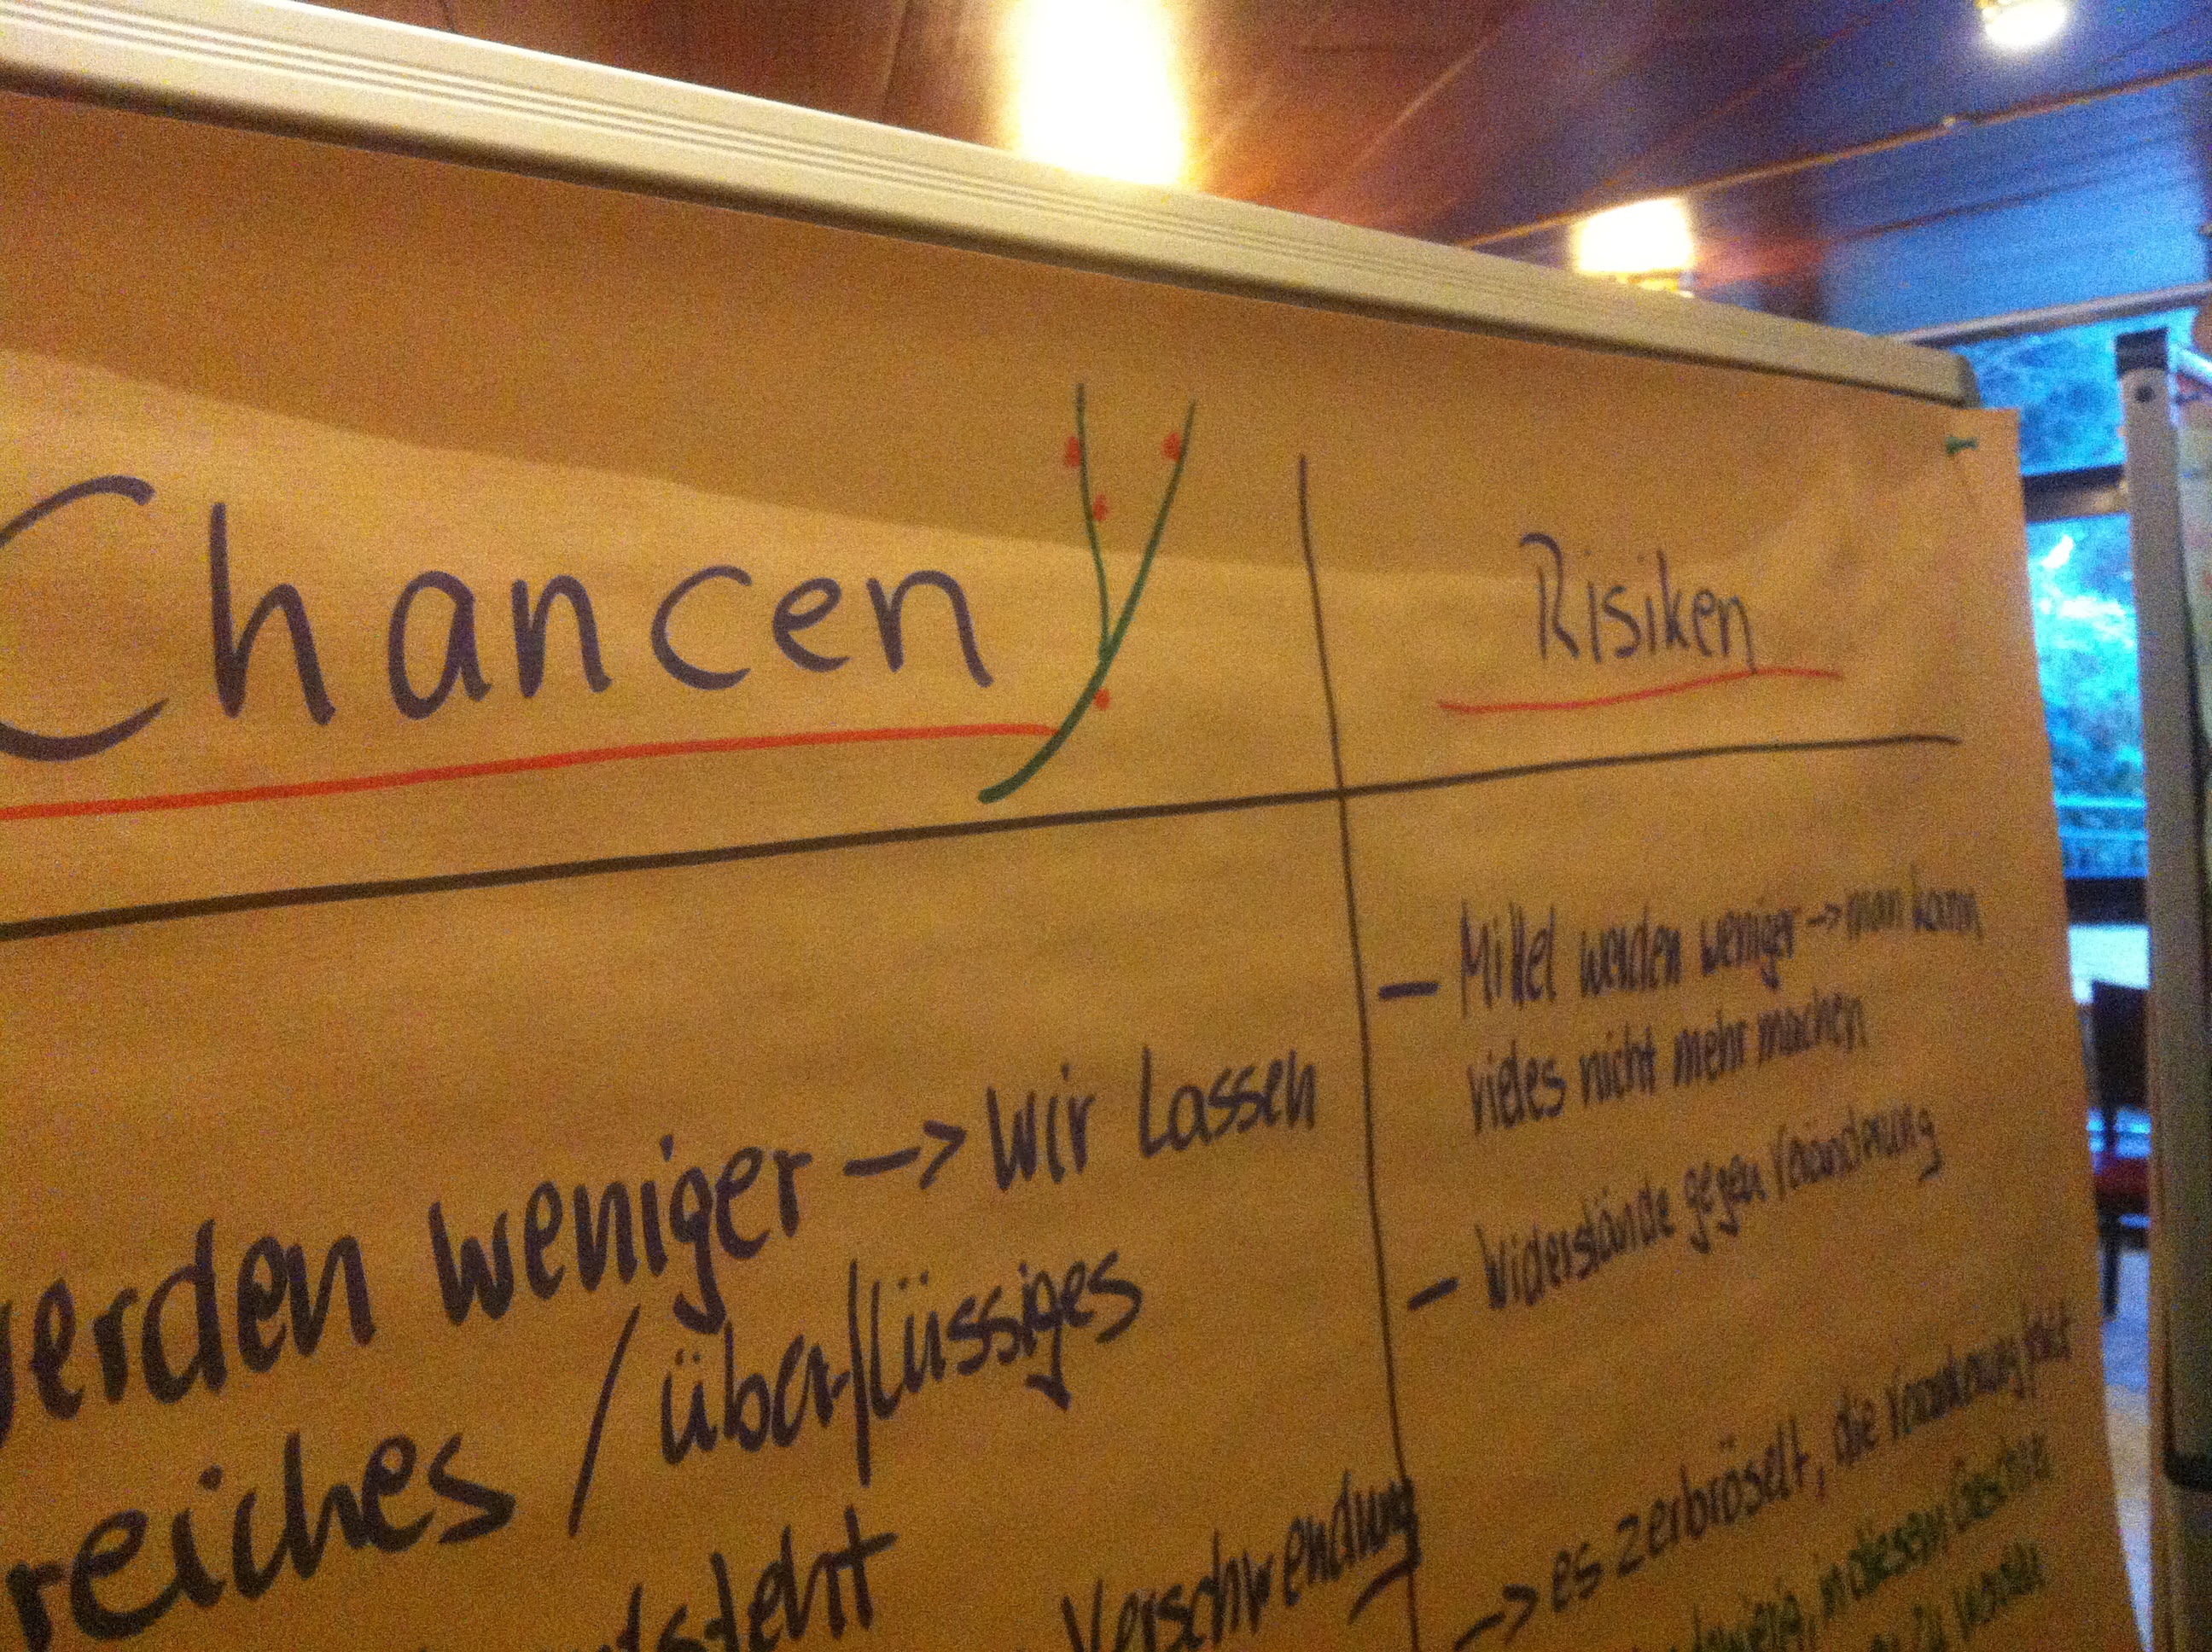 Chancen
werden weniger -> Wir Lassen
reiches / überflüssiges
entsteht
Verschwendung
Risiken
- Mittel werden weniger -> man kann
vieles nicht mehr machen
- Widerstände gegen Veränderung
-> es zerbröselt, die Verankerung fehlt
in diesen